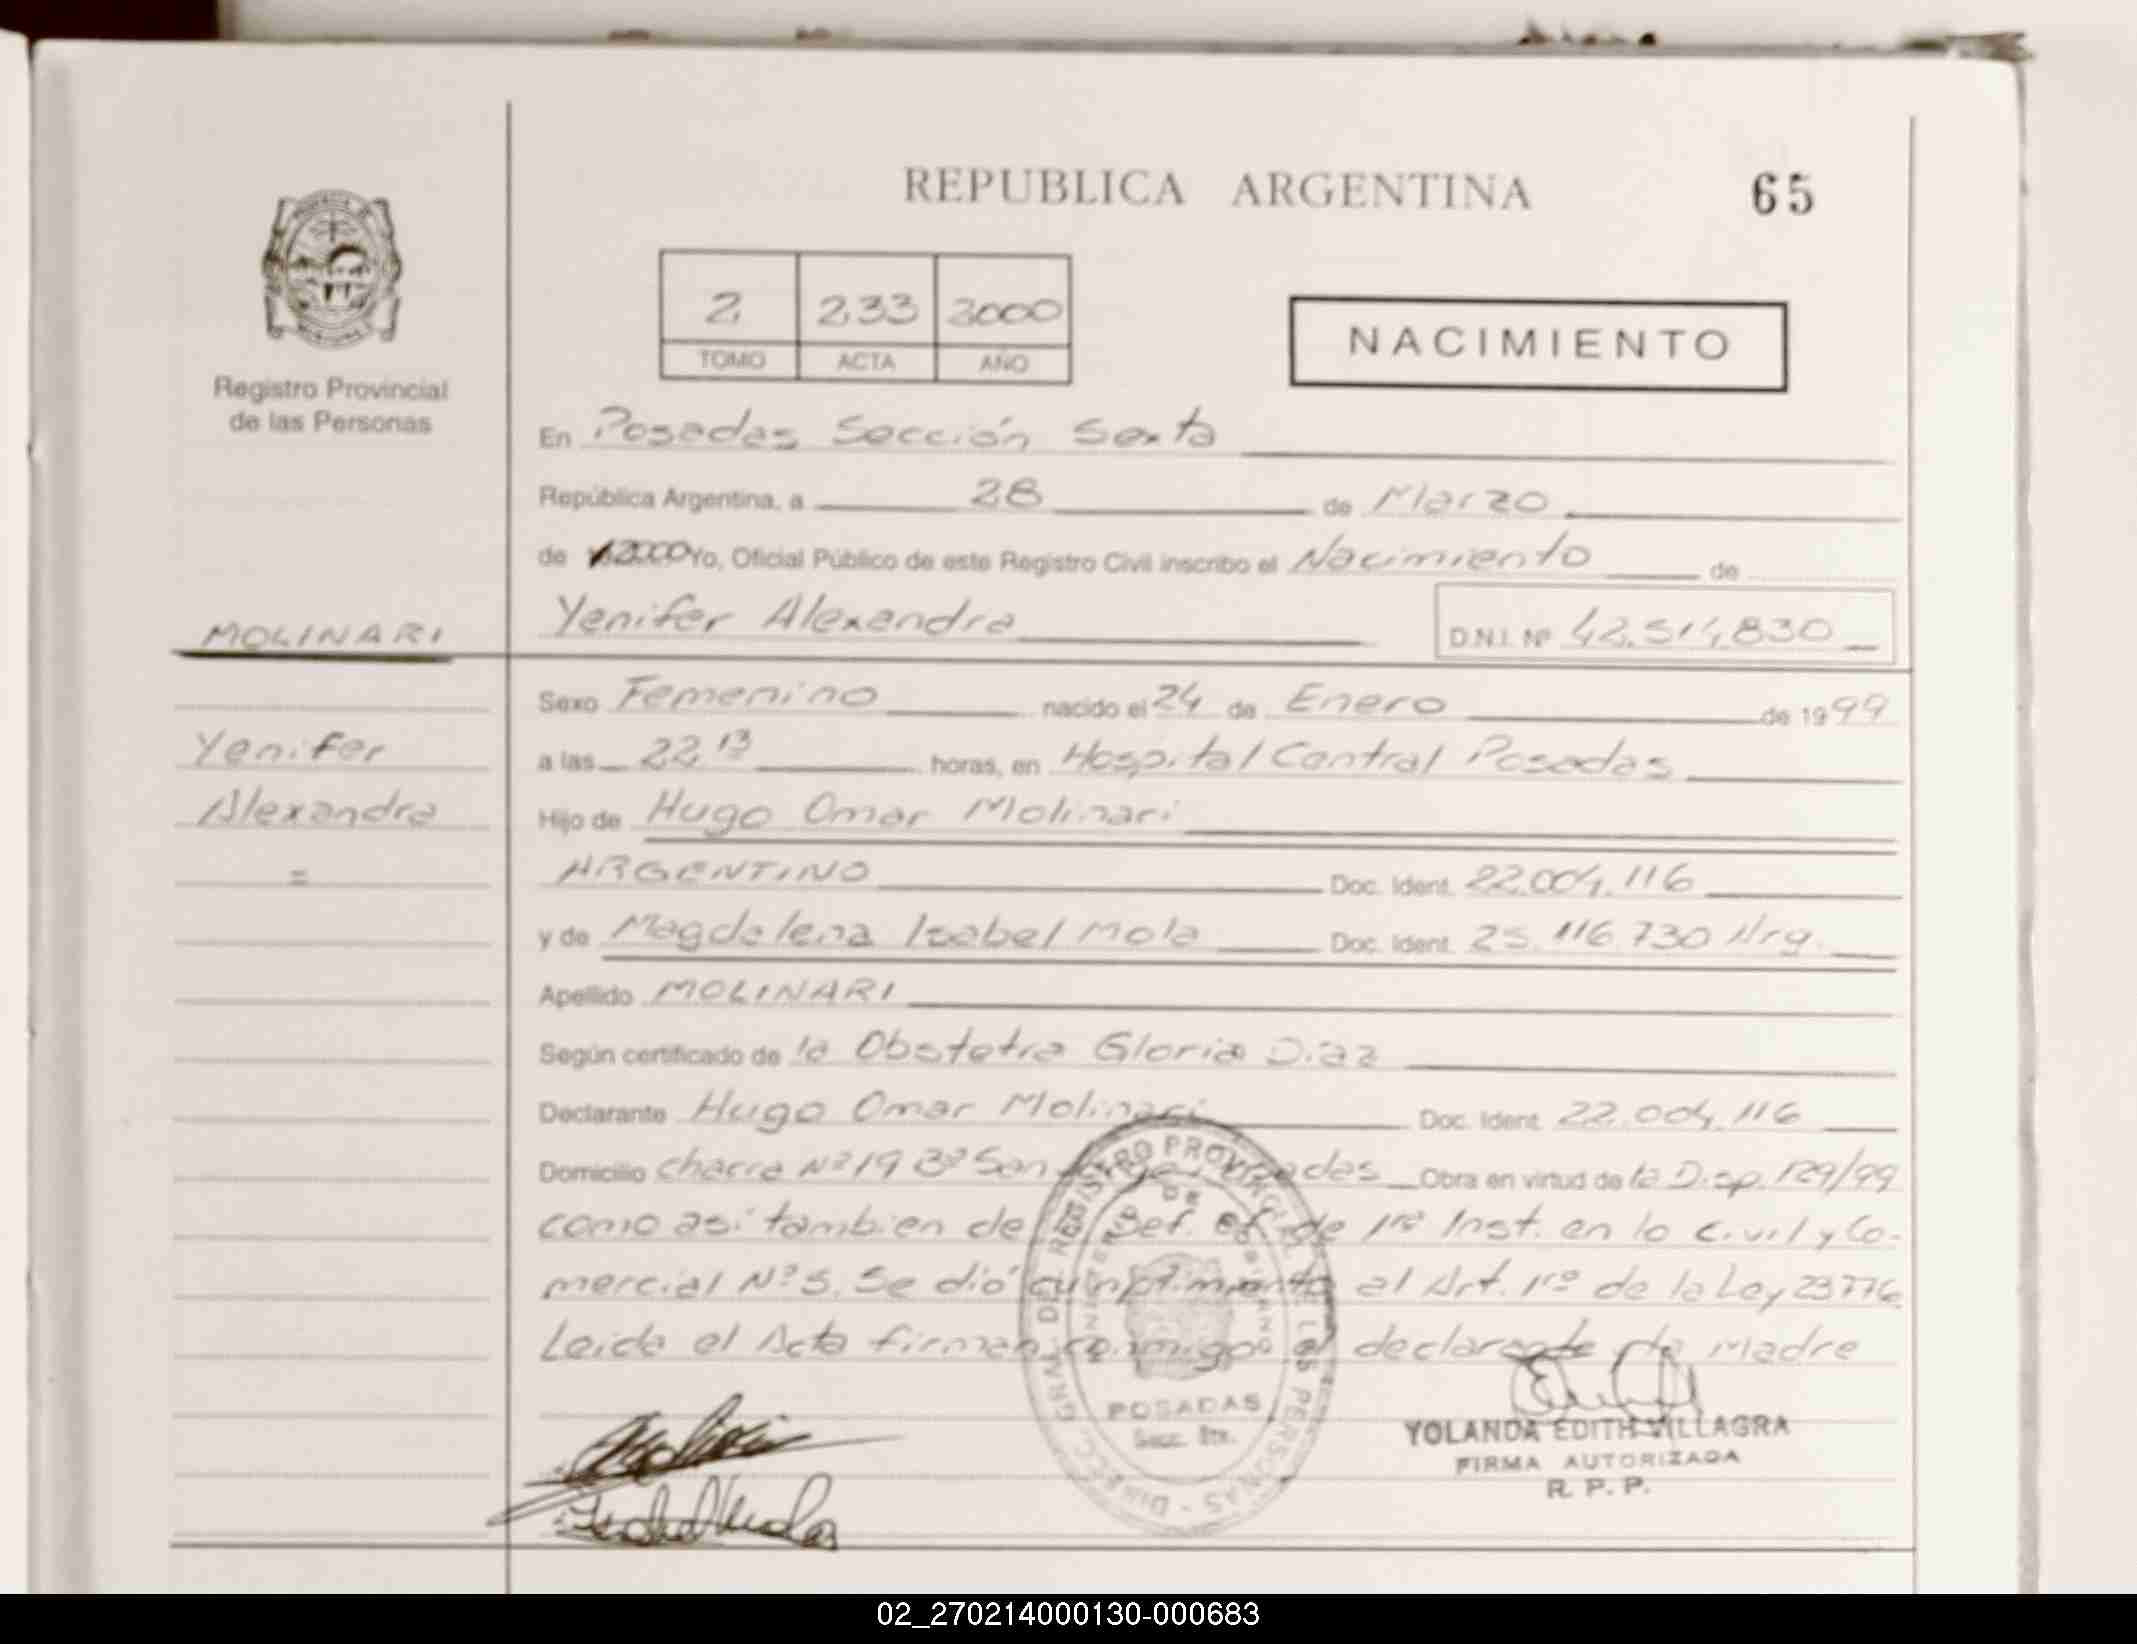 REPUBLICA ARGENTINA
65
2 233 2000
TOMO ACTA AÑO
NACIMIENTO
Registro Provincial
de las Personas
En Posadas Sección Sexta
República Argentina, a 28 de Marzo
de 2000 Yo, Oficial Público de este Registro Civil inscribo el Nacimiento de
MOLINARI
Yenifer Alexandra D.N.I. Nº 42.514.830
Sexo Femenino nacido el 24 de Enero de 1999
Yenifer
a las 22,13 horas, en Hospital Central Posadas
Alexandra
Hijo de Hugo Omar Molinari
=
ARGENTINO Doc. Ident. 22.004.116
y de Magdalena Isabel Mola Doc. Ident. 25.116.730 Arg.
Apellido MOLINARI
Según certificado de la Obstetra Gloria Diaz
Declarante Hugo Omar Molinari Doc. Ident. 22.004.116
Domicilio chacra Nº 19 Bº San Posadas Obra en virtud de la Disp. 129/99
como asi tambien de de 1ra Inst. en lo Civil y Co-
mercial Nº 5. Se dió cumplimiento al Art. 1ro de la Ley 23776
Leida el Acta firman conmigo el declarante la Madre
DIRECC. GRAL. DEL REGISTRO PROVINCIAL DE LAS PERSONAS
MINISTERIO DE GOBIERNO
POSADAS
Secc. 6ta.
YOLANDA EDITH VILLAGRA
FIRMA AUTORIZADA
R. P. P.
02_270214000130-000683